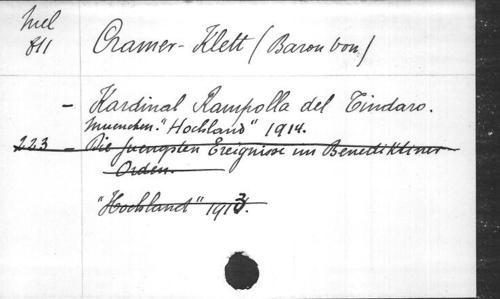 Mel
811
Cramer-Klett (Baron von)
- Kardinal Rampolla del Tindaro.
Muenchen. "Hochland" 1914.
223 - Die juengsten Ereignisse im Benediktiner
Orden.
"Hochland" 1913.